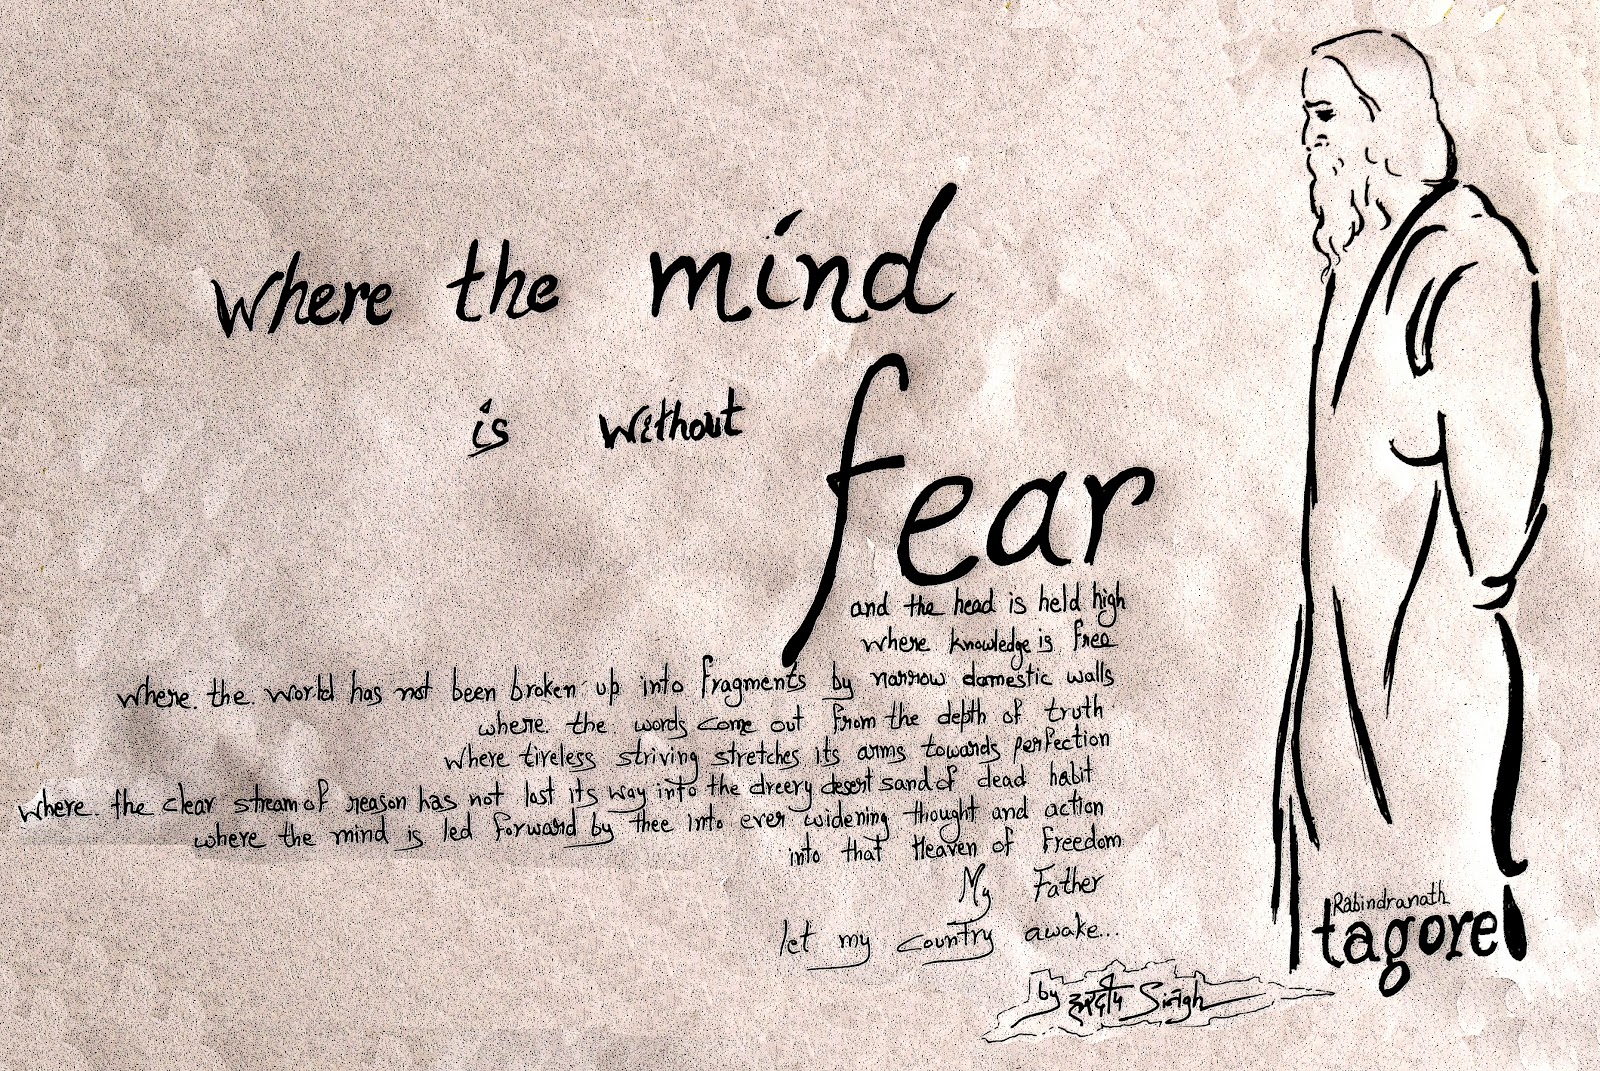 Where the mind
is without
fear
and the head is held high
where knowledge is free
where the world has not been broken up into fragments by narrow domestic walls
where the words come out from the depth of truth
where tireless striving stretches its arms towards perfection
where the clear stream of reason has not lost its way into the dreery desert sand of dead habit
where the mind is led forward by thee into ever widening thought and action
into that Heaven of Freedom
My Father
let my country awake...
Rabindranath
tagore
by हरदीप Singh